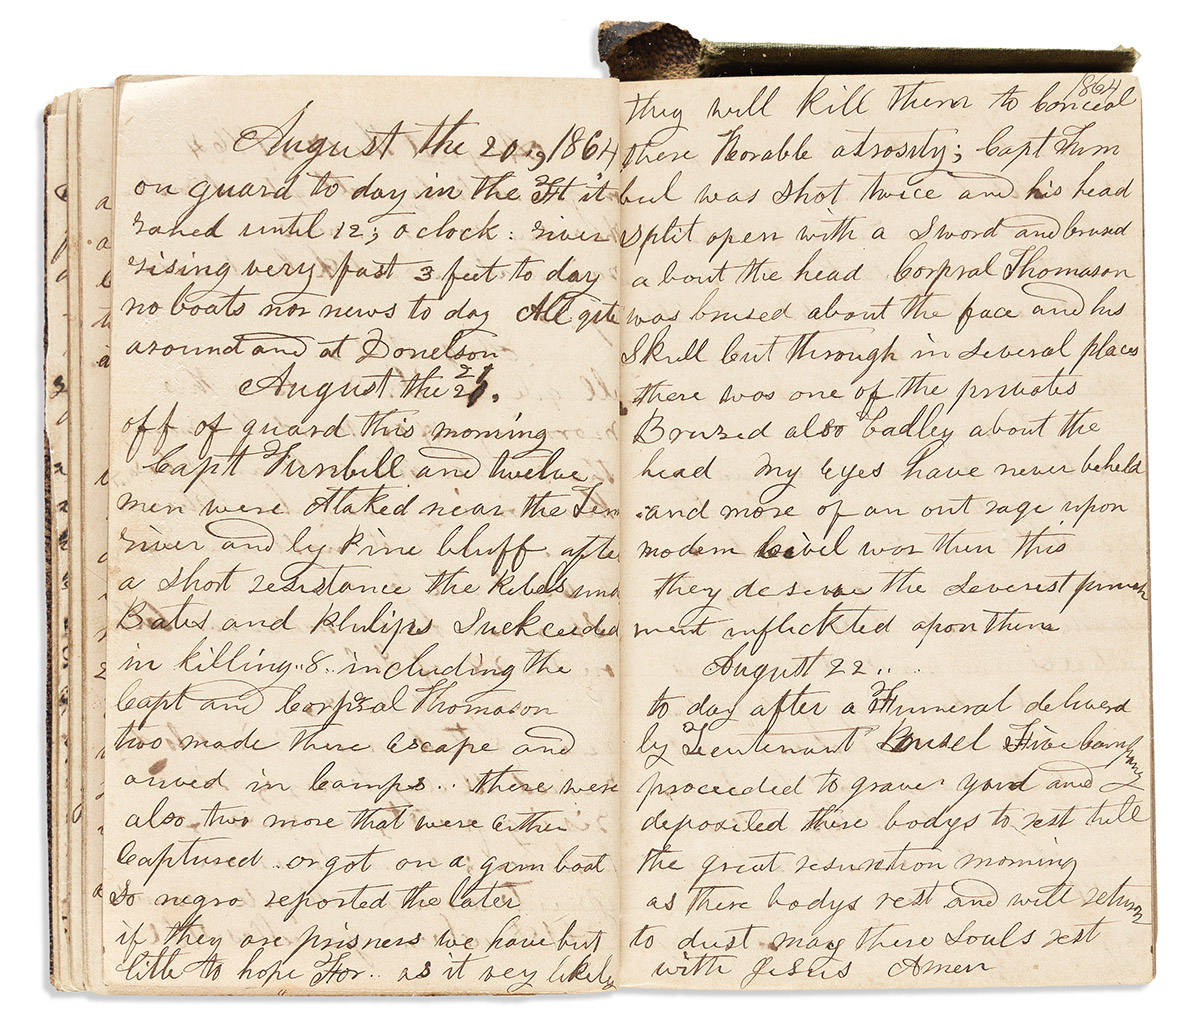 August the 20, 1864
on guard to day in the Ft it
raned until 12; oclock: river
rising very fast 3 feet to day
no boats nor news to day All qite
around and at Donelson
August the 21.
off of guard this morning
Capt Turnbull and twelve
men were Ataked near the Ten
river and by Pine bluff after
a short resistance the Rebels und
Bates and Philips Suckceeded
in killing..8.. including the
Capt and Corpral Thomason
two made there escape and
arived in Camps.. there were
also two more that were Either
Captured..or got on a gun boat
So negro reported the later
if they are prisners we have but
little to hope For.. as it very likely
1864
they will kill them to Conceal
there Horable atrosity; Capt Turn
bul was shot twice and his head
split open with a Sword and brused
about the head Corpral Thomason
was brused about the face and his
Skull cut through in several places
there was one of the privates
Brused also badley about the
head My eyes have never beheld
and more of an out rage upon
modern Civel war then this
they deserve the Severest punish
ment inflickted apon them
August 22..
to day after a Funeral deliverd
by Lieutenant Five Company
proceeded to grave yard and
deposited there bodys to rest till
the great resurection morning
as there bodys rest and will return
to dust may there Souls rest
with Jesus Amen